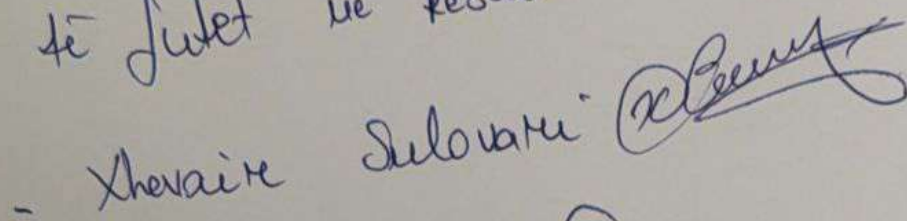 të futet në
- Xhevaire Sulovari